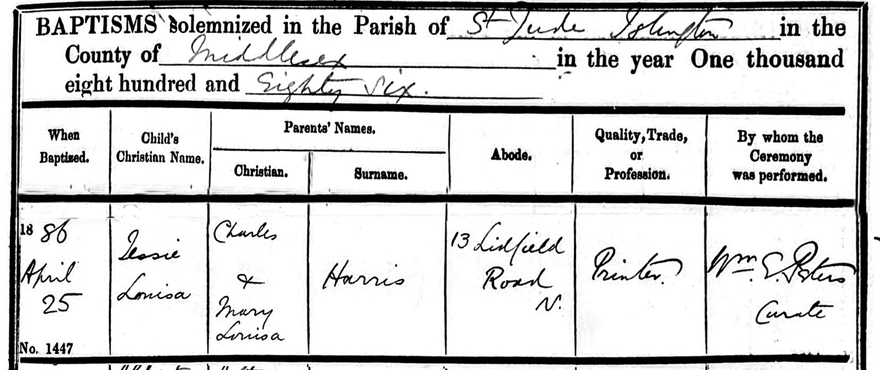 BAPTISMS solemnized in the Parish of St Jude Islington in the
County of Middlesex in the year One thousand
eight hundred and Eighty Six.
When
Baptized.
Child's
Christian Name.
Parents' Names.
Christian.
Surname.
Abode.
Quality, Trade,
or
Profession.
By whom the
Ceremony
was performed.
1886
April
25
No. 1447
Jessie
Louisa
Charles
&
Mary
Louisa
Harris
13 Lidfield
Road
N.
Printer.
Wm. E. Peters
Curate